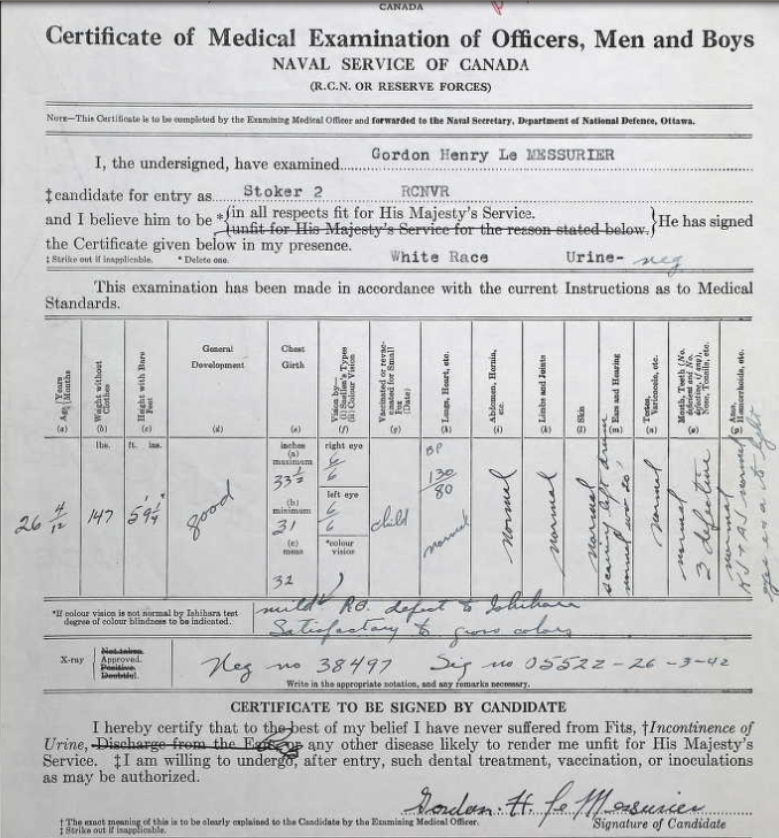 CANADA
Certificate of Medical Examination of Officers, Men and Boys
NAVAL SERVICE OF CANADA
(R.C.N. OR RESERVE FORCES)
NOTE—This Certificate is to be completed by the Examining Medical Officer and forwarded to the Naval Secretary, Department of National Defence, Ottawa.
I, the undersigned, have examined Gordon Henry Le MESSURIER
‡candidate for entry as Stoker 2 RCNVR
and I believe him to be *{in all respects fit for His Majesty's Service.
{unfit for His Majesty's Service for the reason stated below.} He has signed
the Certificate given below in my presence.
‡ Strike out if inapplicable. * Delete one. White Race Urine- neg
This examination has been made in accordance with the current Instructions as to Medical
Standards.
Age {Years {Months (a)
Weight without Clothes (b)
Height with Bare Feet (c)
General Development (d)
Chest Girth (e)
Vision by— (i) Snellen's Types (ii) Colour Vision (f)
Vaccinated or revaccinated for Small Pox (Date) (g)
Lungs, Heart, etc. (h)
Abdomen, Hernia, etc. (i)
Limbs and Joints (k)
Skin (l)
Ears and Hearing (m)
Testes, Varicocele, etc. (n)
Mouth, Teeth (No. deficient and No. defective, if any), Nose, Tonsils, etc.
Anus, Hæmorrhoids, etc.
26 4/12
lbs.
147
ft. ins.
5' 9¼"
good
inches
(a)
maximum
33½
(b)
minimum
31
(c)
mean
32
right eye
6/6
left eye
6/6
*colour vision
child
BP
130/80
normal
Normal
Normal
Normal
scarring left drum
normal
normal
3 defective
normal
KJ + AJ normal
*If colour vision is not normal by Ishihara test
degree of colour blindness to be indicated.
mild R.G. defect to Ishihara
Satisfactory to gross colors
X-ray
Not taken.
Approved.
Positive.
Doubtful.
Neg no 38497 Sig no 05522-26-3-42
Write in the appropriate notation, and any remarks necessary.
CERTIFICATE TO BE SIGNED BY CANDIDATE
I hereby certify that to the best of my belief I have never suffered from Fits, †Incontinence of
Urine, Discharge from the Ears or any other disease likely to render me unfit for His Majesty's
Service. ‡I am willing to undergo, after entry, such dental treatment, vaccination, or inoculations
as may be authorized.
Gordon. H. Le Messurier
† The exact meaning of this is to be clearly explained to the Candidate by the Examining Medical Officer. Signature of Candidate
‡ Strike out if inapplicable.